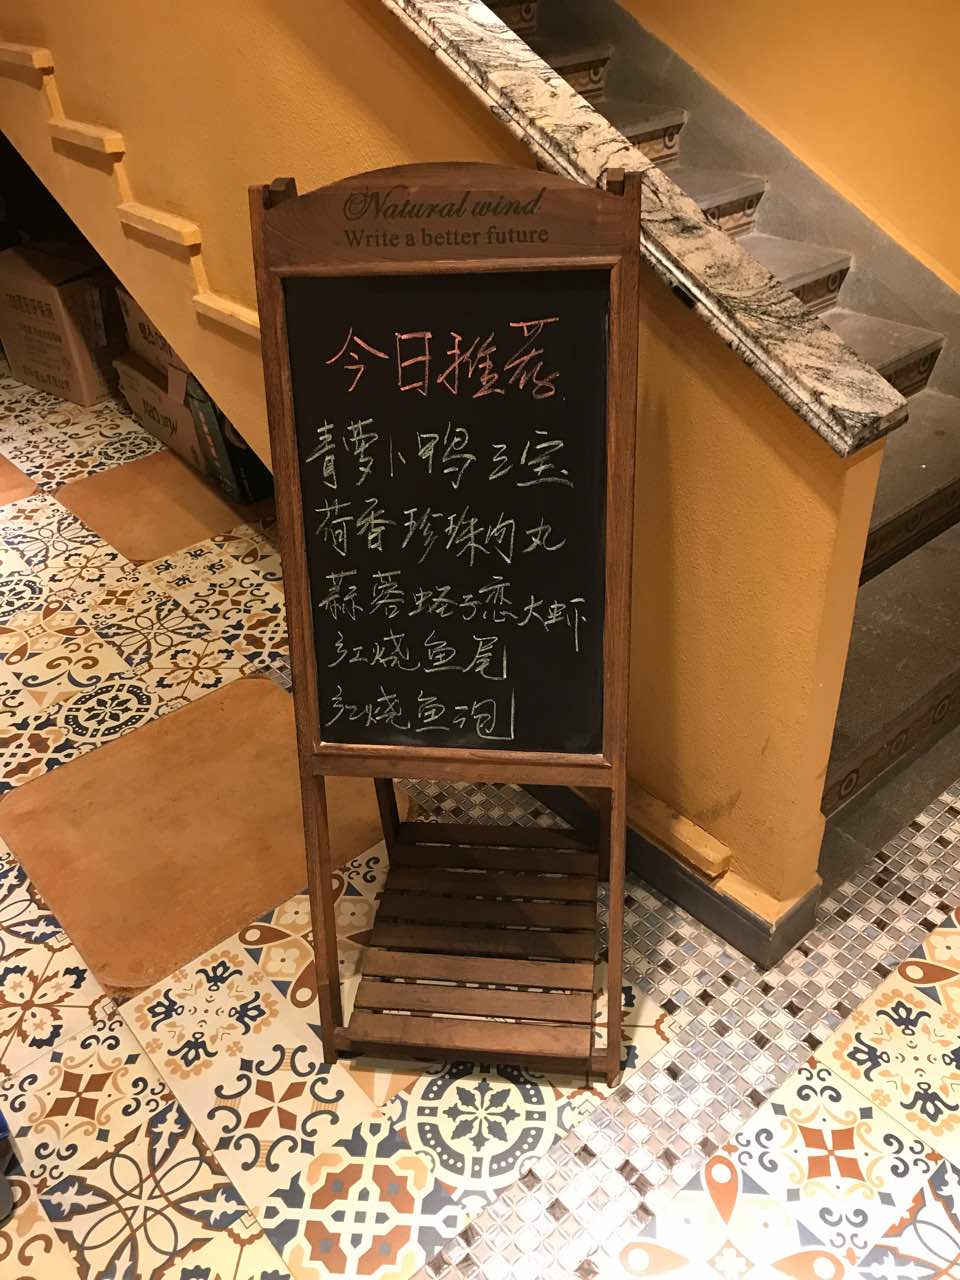 Natural wind
Write a better future
今日推荐
青萝卜鸭三宝
荷香珍珠肉丸
蒜蓉蛏子恋大虾
红烧鱼尾
红烧鱼泡